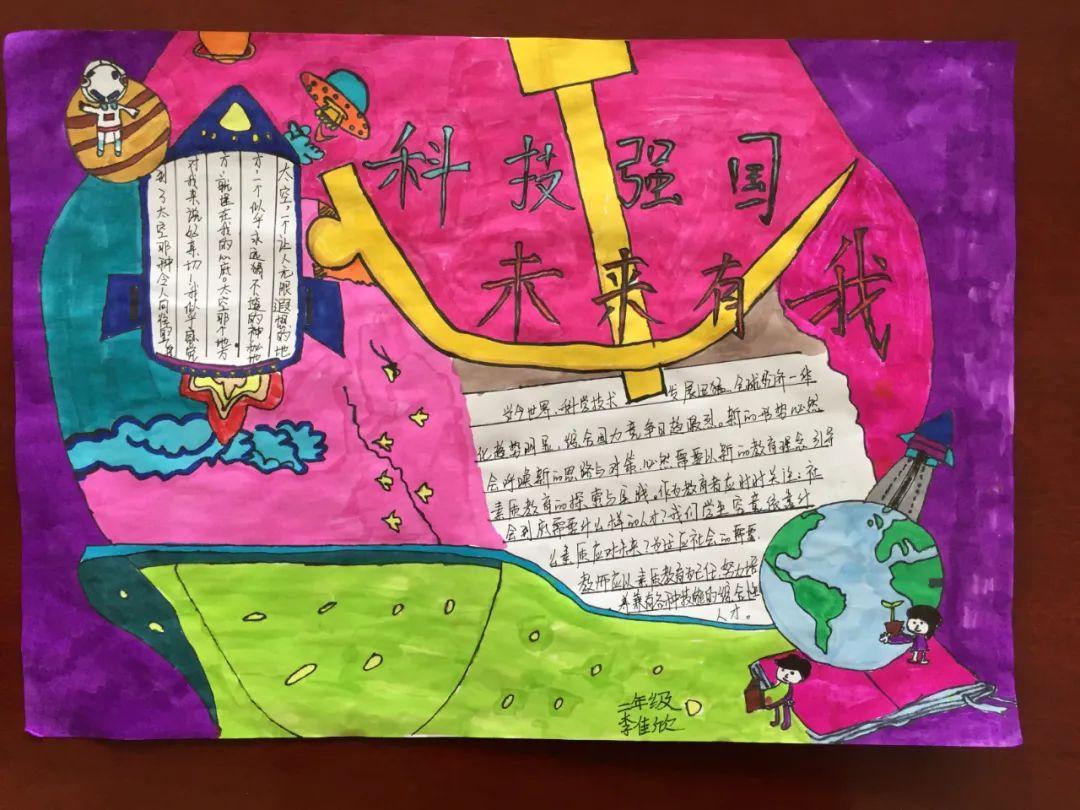 科技强国
未来有我
太空，一个让人无限遐想的地
方，一个似乎永远猜不透的神秘地
方，就埋在我的心底。太空那个地方
对我来说好亲切！我似乎感觉
到了太空那种令人向往的
当今世界，科学技术 发展迅猛，全球经济一体
化趋势明显，综合国力竞争日趋激烈。新的形势必然
会呼唤新的思路与对策，必然需要以新的教育理念引导
素质教育的探索与实践。作为教育者应时时关注：社
会到底需要什么样的人才？我们学生究竟依靠什
么素质应对未来？为适应社会的需要，
教师应以素质教育为己任，努力培
养兼有各种技能的综合性
人才。
二年级
李佳欣